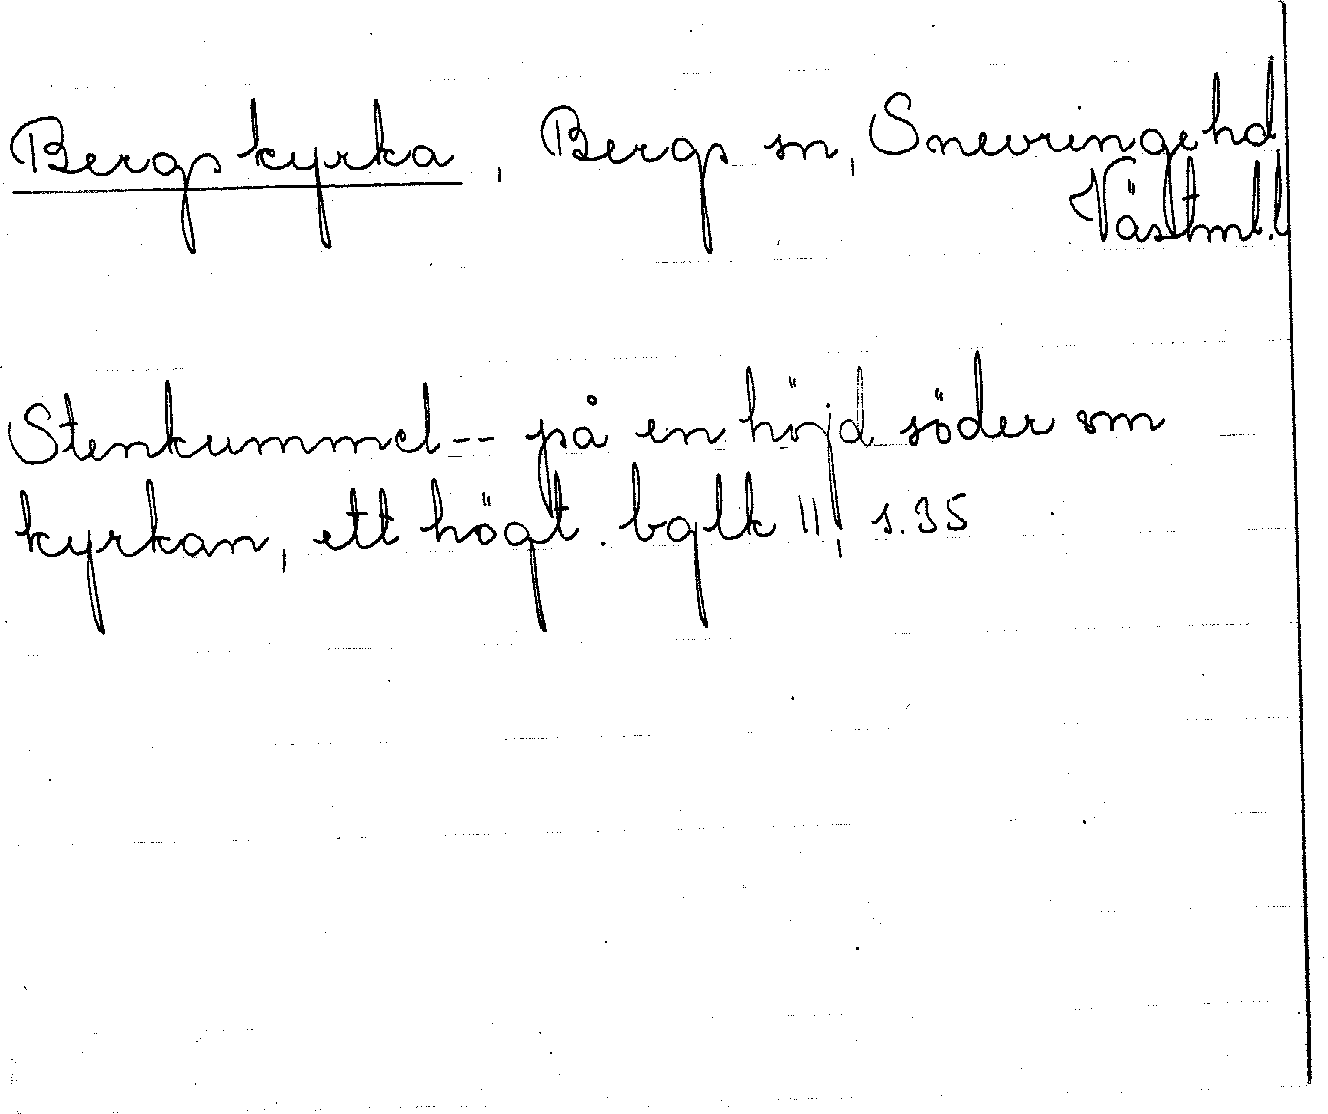 Bergs kyrka, Bergs sn, Snevringe hd
Västml. l
Stenkummel -- på en höjd söder om
kyrkan, ett högt. bglk II, s. 35